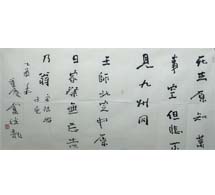 死去原知萬
事空但悲不
見九州同
王師北定中原
日家祭無忘告
乃翁